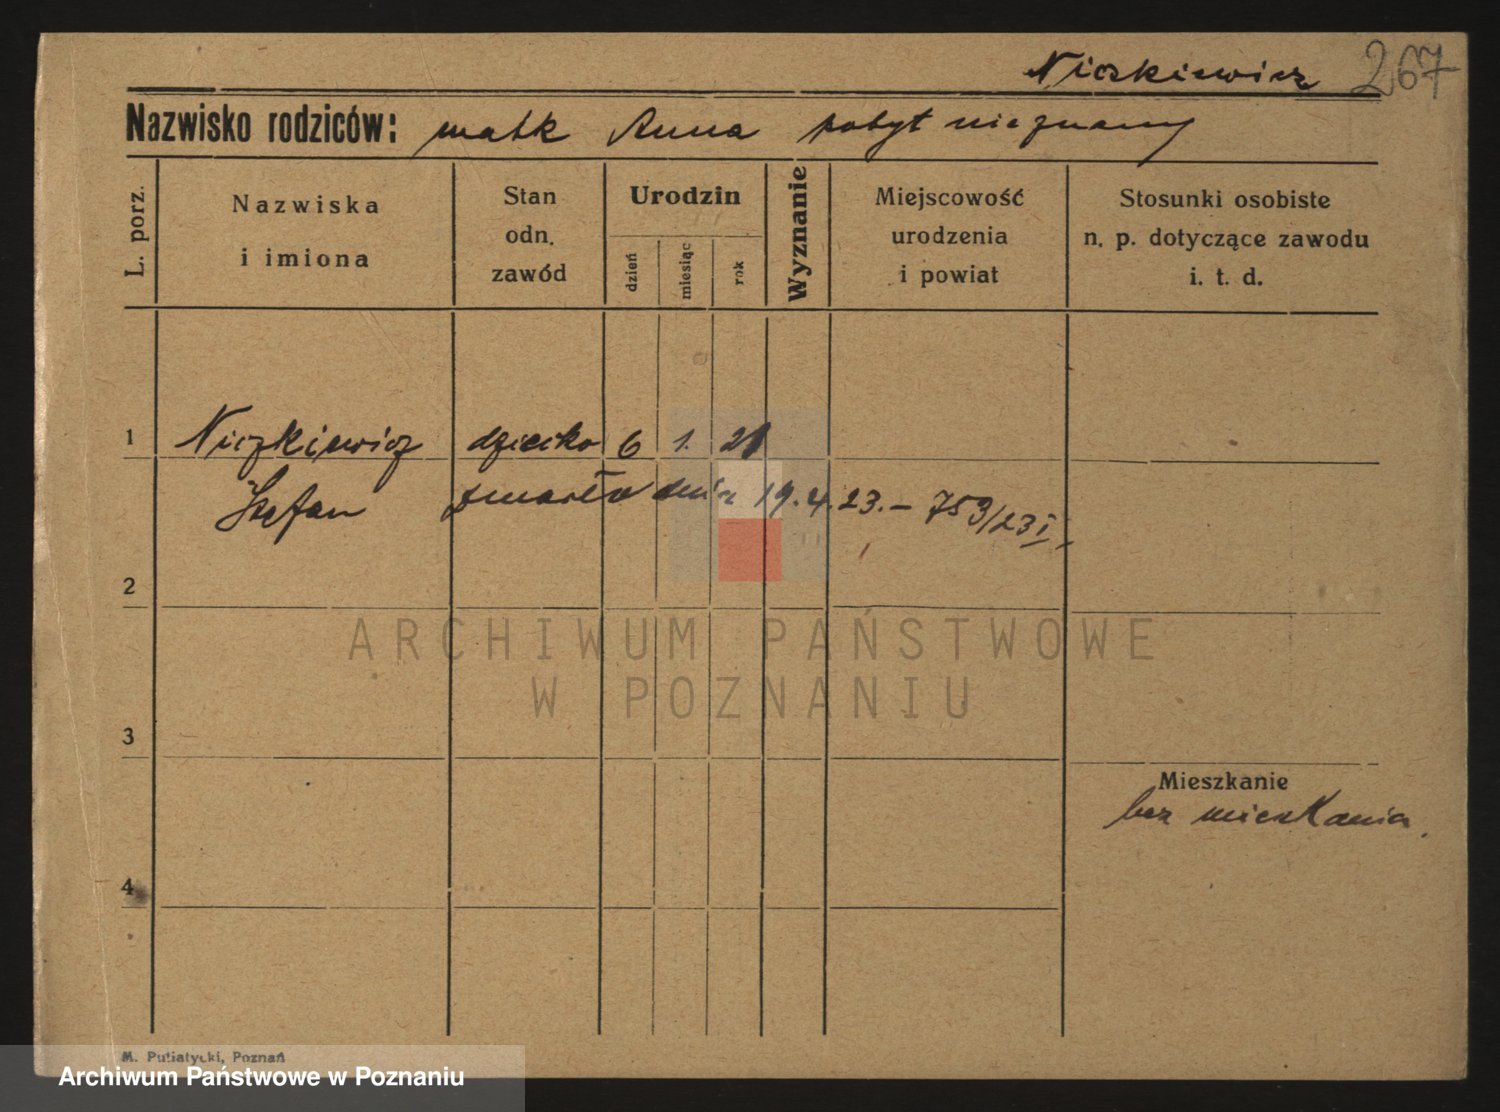 Niczkiewicz 267
Nazwisko rodziców: matk Anna pobyt nieznany
L. porz.
Nazwiska
i imiona
Stan
odn.
zawód
Urodzin
dzień
miesiąc
rok
Wyznanie
Miejscowość
urodzenia
i powiat
Stosunki osobiste
n. p. dotyczące zawodu
i. t. d.
1 Niczkiewicz dziecko 6 1. 21
Stefan zmarło dnia 19.4.23. – 759/23 I.
2
ARCHIWUM PAŃSTWOWE
W POZNANIU
3
Mieszkanie
bez mieszkania.
4
M. Putiatycki, Poznań
Archiwum Państwowe w Poznaniu